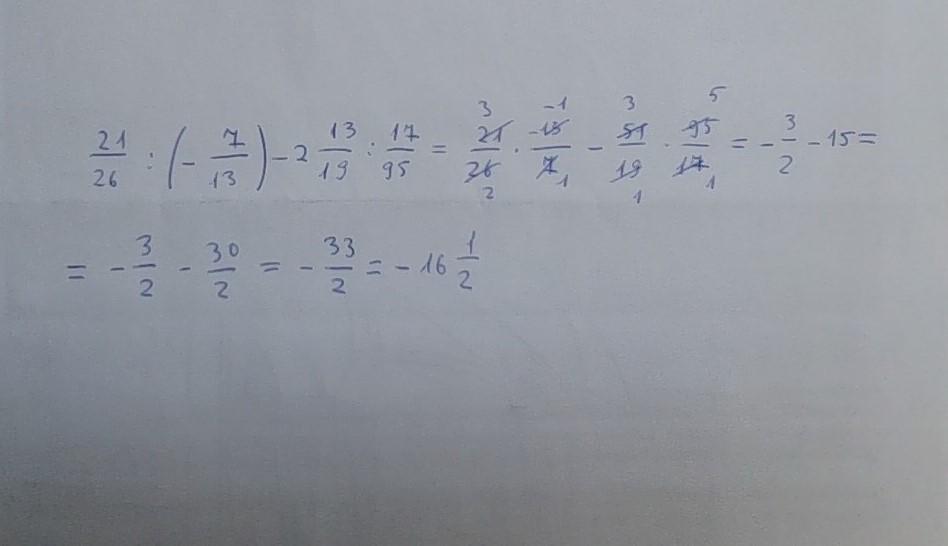 21/26 : (- 7/13) - 2 13/19 : 17/95 = 21/26 · -13/7 - 51/19 · 95/17 = - 3/2 - 15 =
= - 3/2 - 30/2 = - 33/2 = - 16 1/2